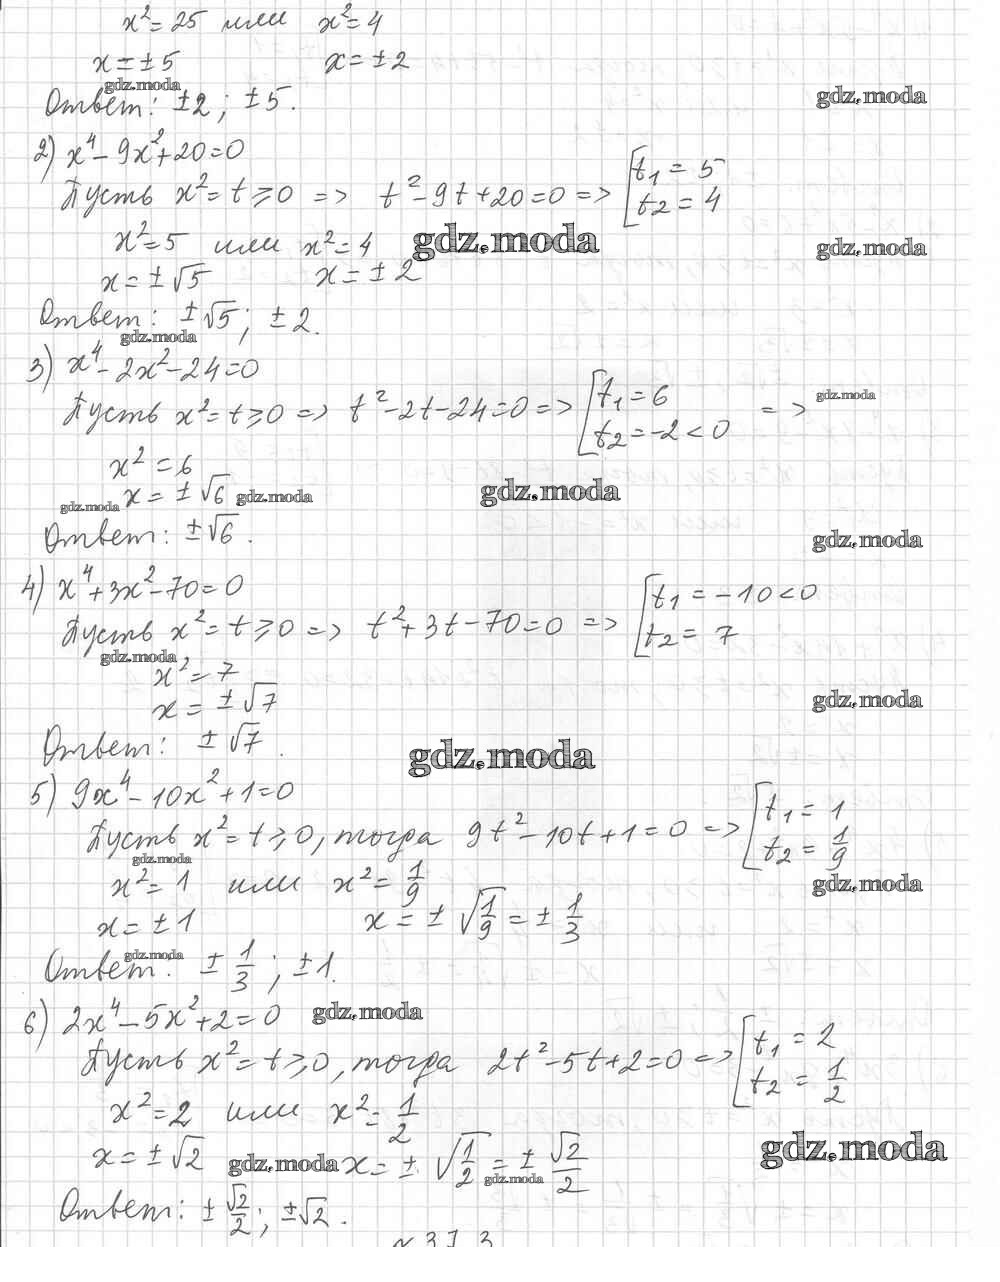 x² = 25 или x² = 4
x = ± 5 x = ± 2
gdz.moda
Ответ: ±2; ±5.
gdz.moda
2) x⁴ - 9x² + 20 = 0
Пусть x² = t ⩾ 0 => t² - 9t + 20 = 0 => [ t₁ = 5
t₂ = 4
x² = 5 или x² = 4
gdz.moda
gdz.moda
x = ± √5 x = ± 2
Ответ: ± √5; ± 2.
gdz.moda
3) x⁴ - 2x² - 24 = 0
Пусть x² = t ⩾ 0 => t² - 2t - 24 = 0 => [ t₁ = 6
t₂ = -2 < 0 =>
gdz.moda
x² = 6
gdz.moda x = ± √6 gdz.moda
gdz.moda
Ответ: ± √6.
gdz.moda
4) x⁴ + 3x² - 70 = 0
Пусть x² = t ⩾ 0 => t² + 3t - 70 = 0 => [ t₁ = -10 < 0
t₂ = 7
gdz.moda
x² = 7
x = ± √7
gdz.moda
Ответ: ± √7.
gdz.moda
5) 9x⁴ - 10x² + 1 = 0
Пусть x² = t ⩾ 0, тогда 9t² - 10t + 1 = 0 => [ t₁ = 1
t₂ = 1/9
gdz.moda
x² = 1 или x² = 1/9
gdz.moda
x = ± 1 x = ± √(1/9) = ± 1/3
gdz.moda
Ответ: ± 1/3; ± 1.
6) 2x⁴ - 5x² + 2 = 0
gdz.moda
Пусть x² = t ⩾ 0, тогда 2t² - 5t + 2 = 0 => [ t₁ = 2
t₂ = 1/2
x² = 2 или x² = 1/2
gdz.moda
x = ± √2 gdz.moda x = ± √(1/2) = ± √2/2
gdz.moda
Ответ: ± √2/2; ± √2.